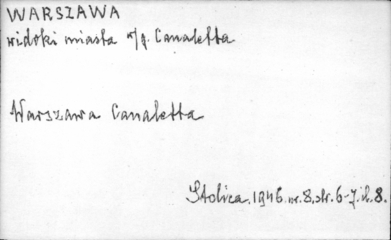 WARSZAWA
widoki miasta w/g. Canaletta
Warszawa Canaletta
Stolica, 1946. nr. 8, str. 6-7. il. 8.